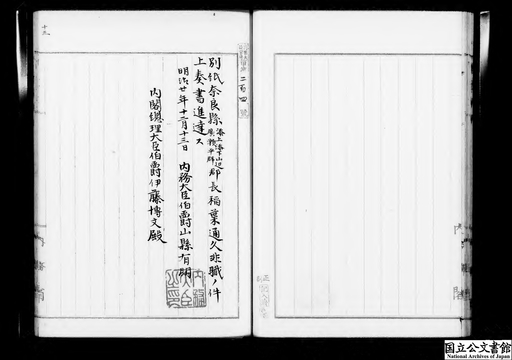 別紙奈良縣添上添下山辺廣瀬平群郡長稲葉通久非職ノ件
上奏書進達ス
明治廿年十二月十三日 内務大臣伯爵山縣有朋
内閣總理大臣伯爵伊藤博文殿
二百四
国立公文書館
National Archives of Japan